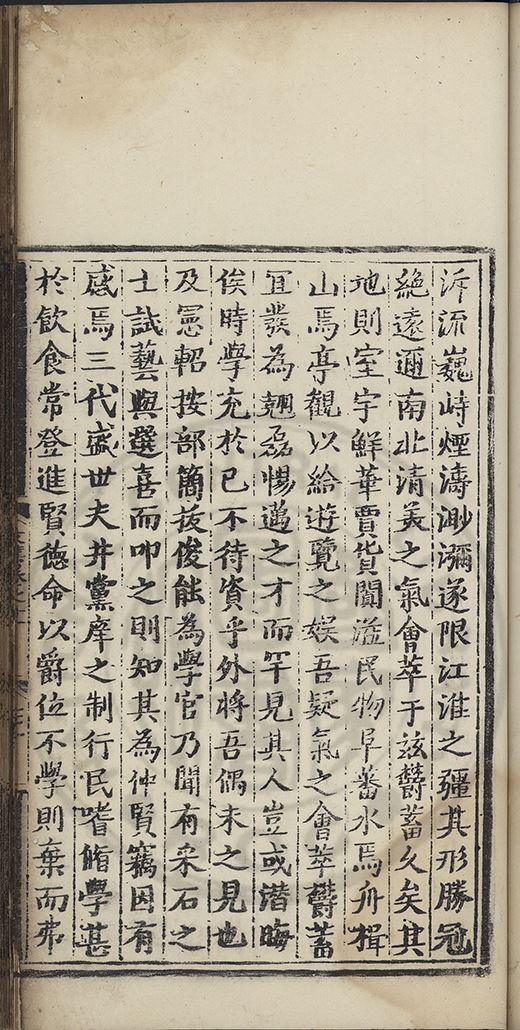 泝流巍峙煙濤渺瀰遂限江淮之疆其形勝冠
絶遠邇南北清美之氣會萃于兹欝蓄久矣其
地則室宇鮮華賈貲闐溢民物阜蕃水焉舟楫
山焉亭觀以給遊覽之娱吾疑氣之會萃欝蓄
冝發為翹磊惕邁之才而罕見其人豈或潜晦
俟時學充於已不待資乎外将吾偶未之見也
及憲軺按部簡抜俊能為學官乃聞有采石之
士試藝與選喜而叩之則知其為仲賢竊因有
感焉三代盛世夫井黨庠之制行民嗜脩學甚
於飲食常登進賢德命以爵位不學則棄而弗